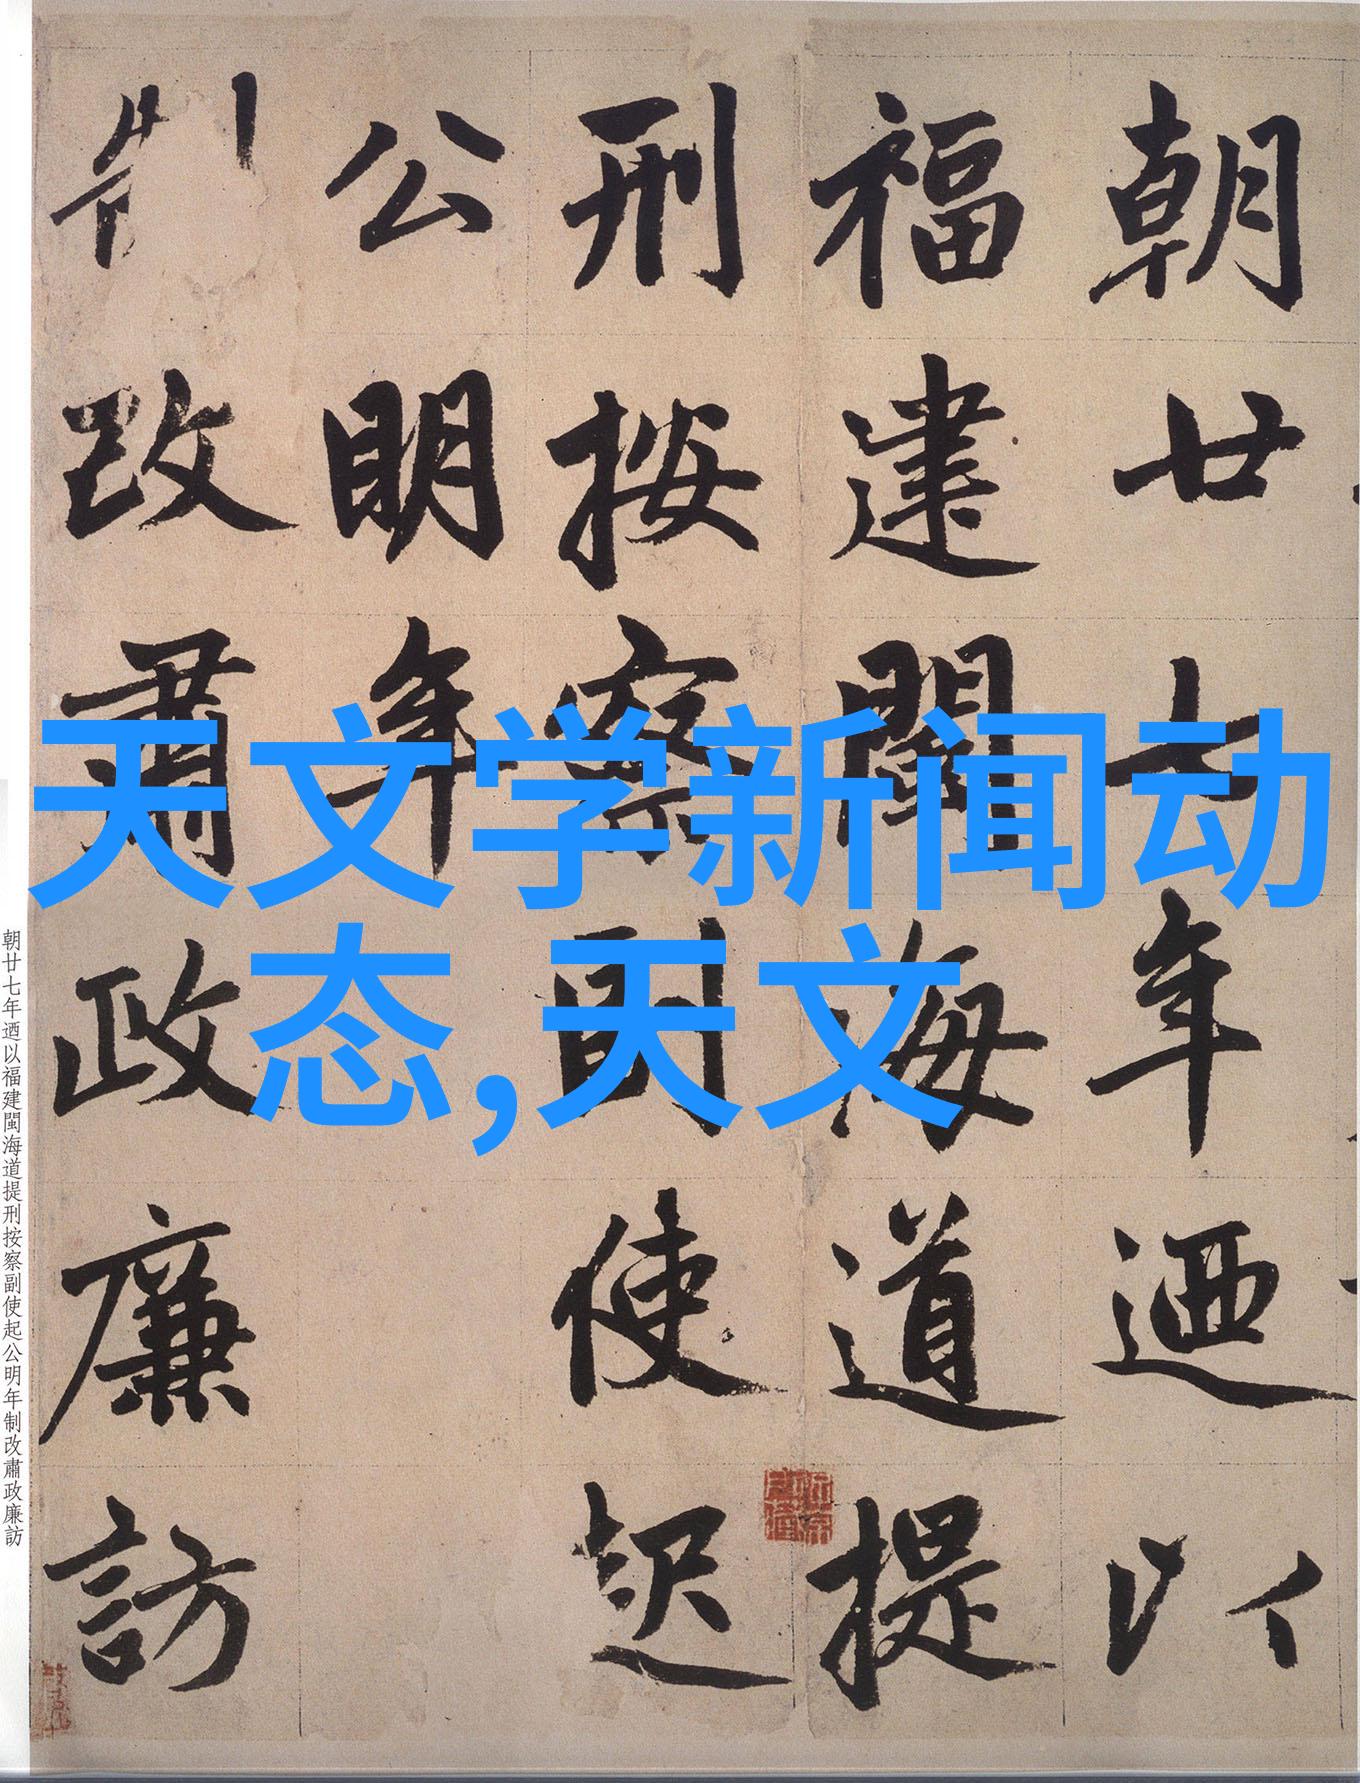 朝廿七年迺以
福建閩海道提
刑按察副使起
公明年
制改肅政廉訪
天文学新闻动
态,天文
朝廿七年迺以福建閩海道提刑按察副使起公明年制改肅政廉訪